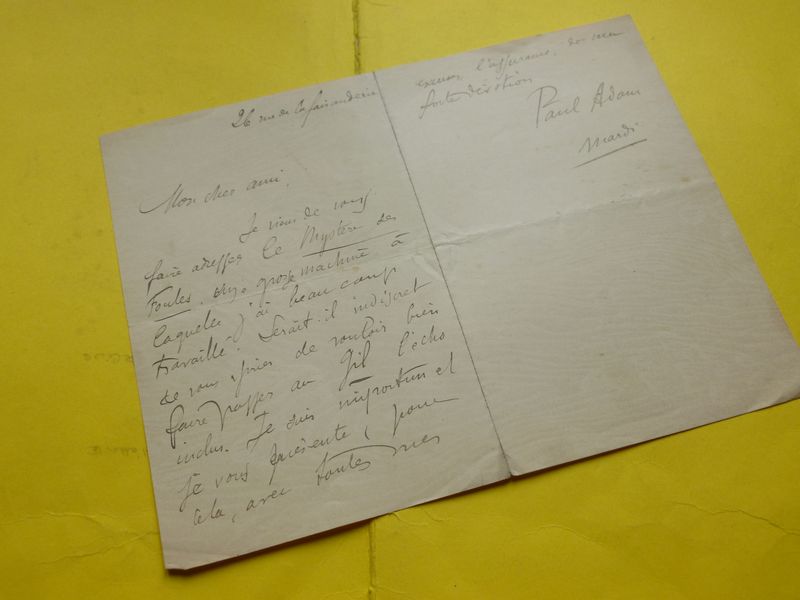 26 rue de la faisanderie
Mon cher ami,
Je viens de vous
faire adresser Le Mystère des
Foules, une grosse machine à
laquelle j'ai beaucoup
travaillé. Serait-il indiscret
de vous prier de vouloir bien
faire passer au Gil l'écho
inclus. Je suis importun et
je vous présente, pour
cela, avec toutes mes
excuses l'assurance, de ma
forte dévotion
Paul Adam
Mardi